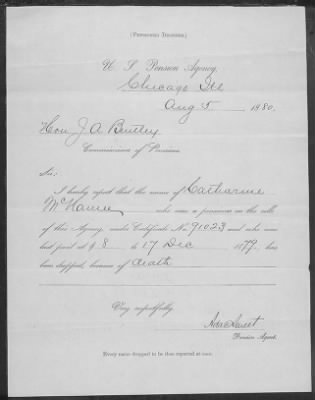 (Pensioner Dropped.)
U. S. Pension Agency,
Chicago Ill
Aug 5 1880.
Hon. J A Bentley
Commissioner of Pensions.
Sir:
I hereby report that the name of Catharine
who was a pensioner on the rolls
of this Agency, under Certificate No. 91023 and who was
last paid at $ 8 to 17 Dec 1879, has
been dropped, because of death
Very respectfully,
Ada Sweet
Pension Agent.
Every name dropped to be thus reported at once.